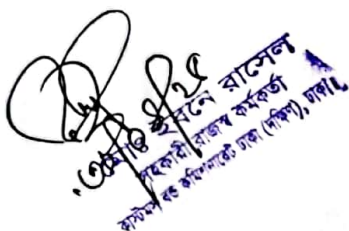 ইবনে রাসেল
সহকারী রাজস্ব কর্মকর্তা
কাস্টমস বন্ড কমিশনারেট ঢাকা (দক্ষিণ), ঢাকা।